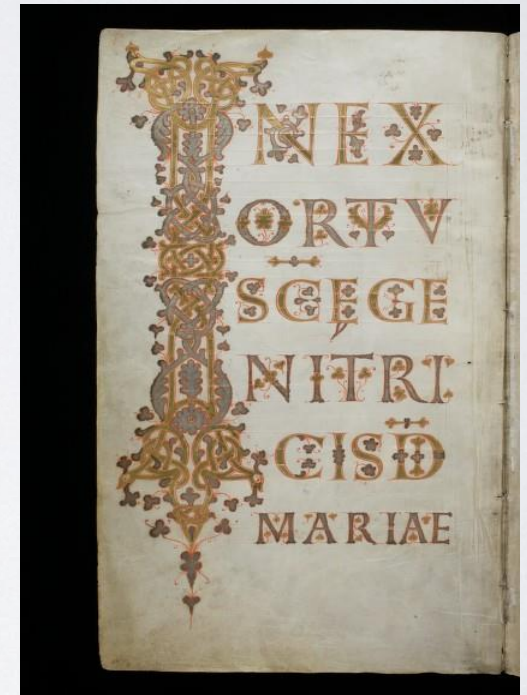 INEX
ORTV
SCĘGE
NITRI
CISD̄
MARIAE